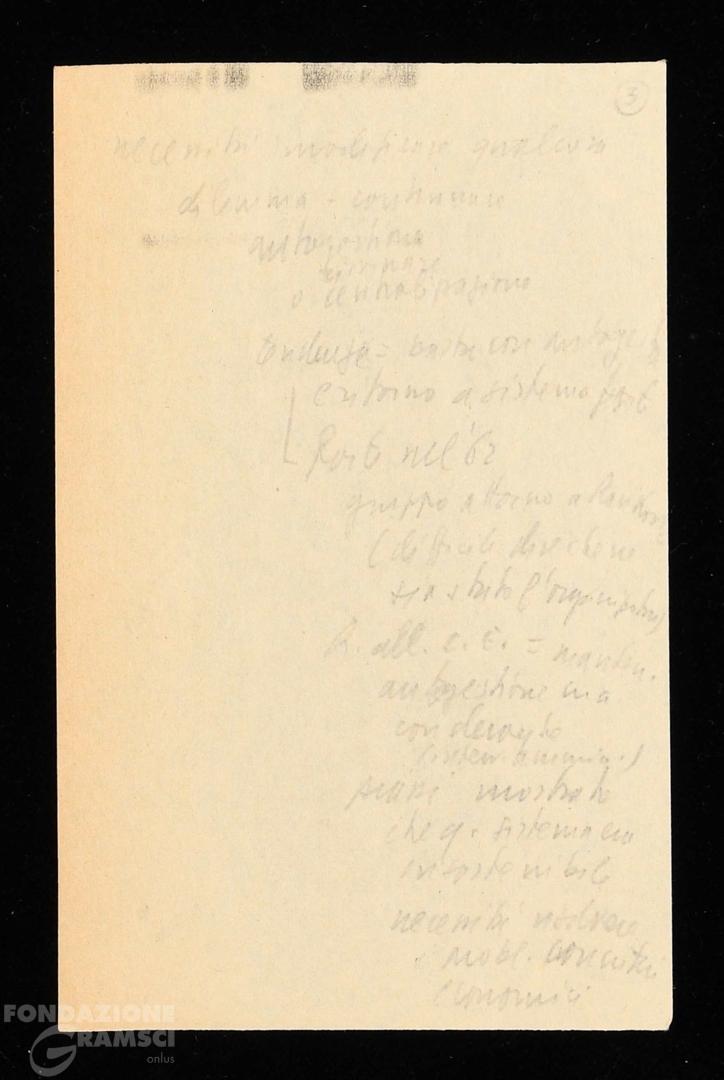 3
necessità modificare qualcosa
dilemma - continuare
autogestione
o centralizzazione
tendenza = basta con autogest.
ritorno a sistema
forte nel '62
gruppo attorno a Rankovic
(difficile dire che ne
sia stato l'organizzatore)
all. c. c. = manten.
autogestione ma
con
(sistem. amminis.)
mostrato
che q. sistema era
insostenibile
necessità risolvere
probl. concreti
economici
FONDAZIONE
GRAMSCI
onlus